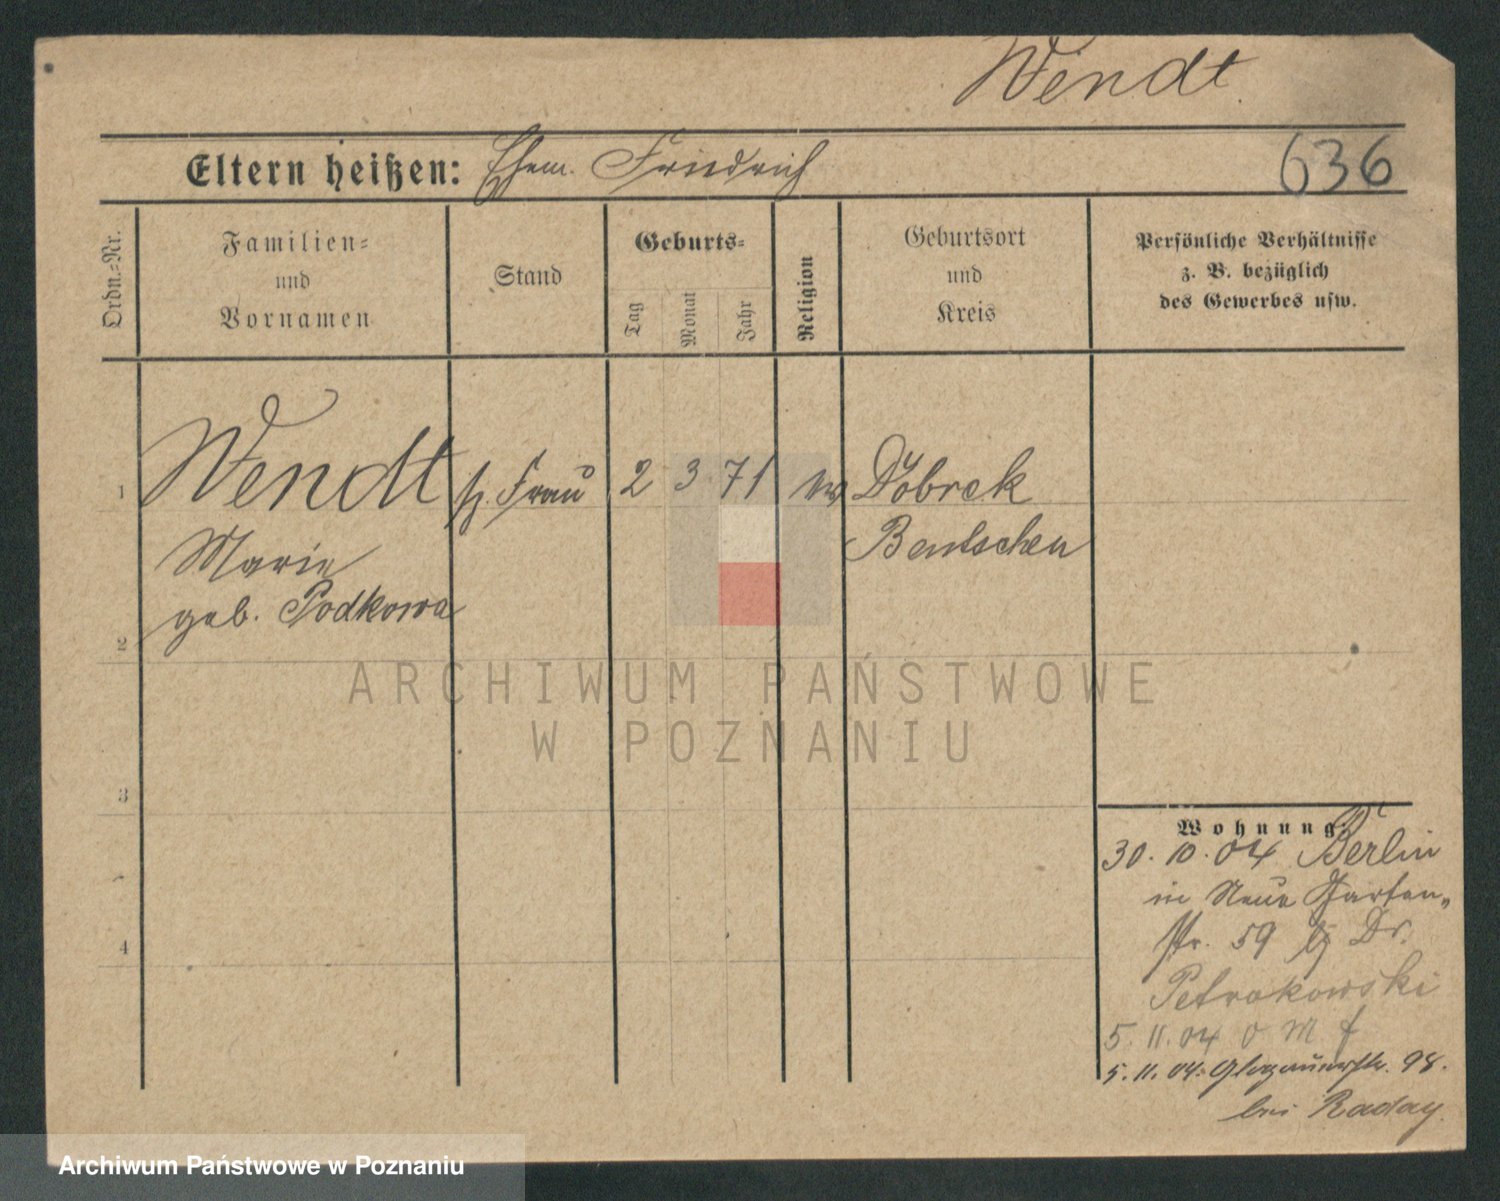 Wendt.
Eltern heißen: Ehem. Friedrich
636
Ordn.=Nr.
Familien=
und
Vornamen
Stand
Geburts=
Tag
Monat
Jahr
Religion
Geburtsort
und
Kreis
Persönliche Verhältnisse
z. B. bezüglich
des Gewerbes usw.
1 Wendt Frau 2 3 71 Dobrek
Bentschen
Marie
geb. Podkowa
2
3
4
Wohnung:
30.10.04 Berlin
in Neue Garten-
str. 59 Dr.
Petrakowski
5.11.04
5.11.04. Glogauerstr. 98.
bei Raday.
ARCHIWUM PAŃSTWOWE
W POZNANIU
Archiwum Państwowe w Poznaniu